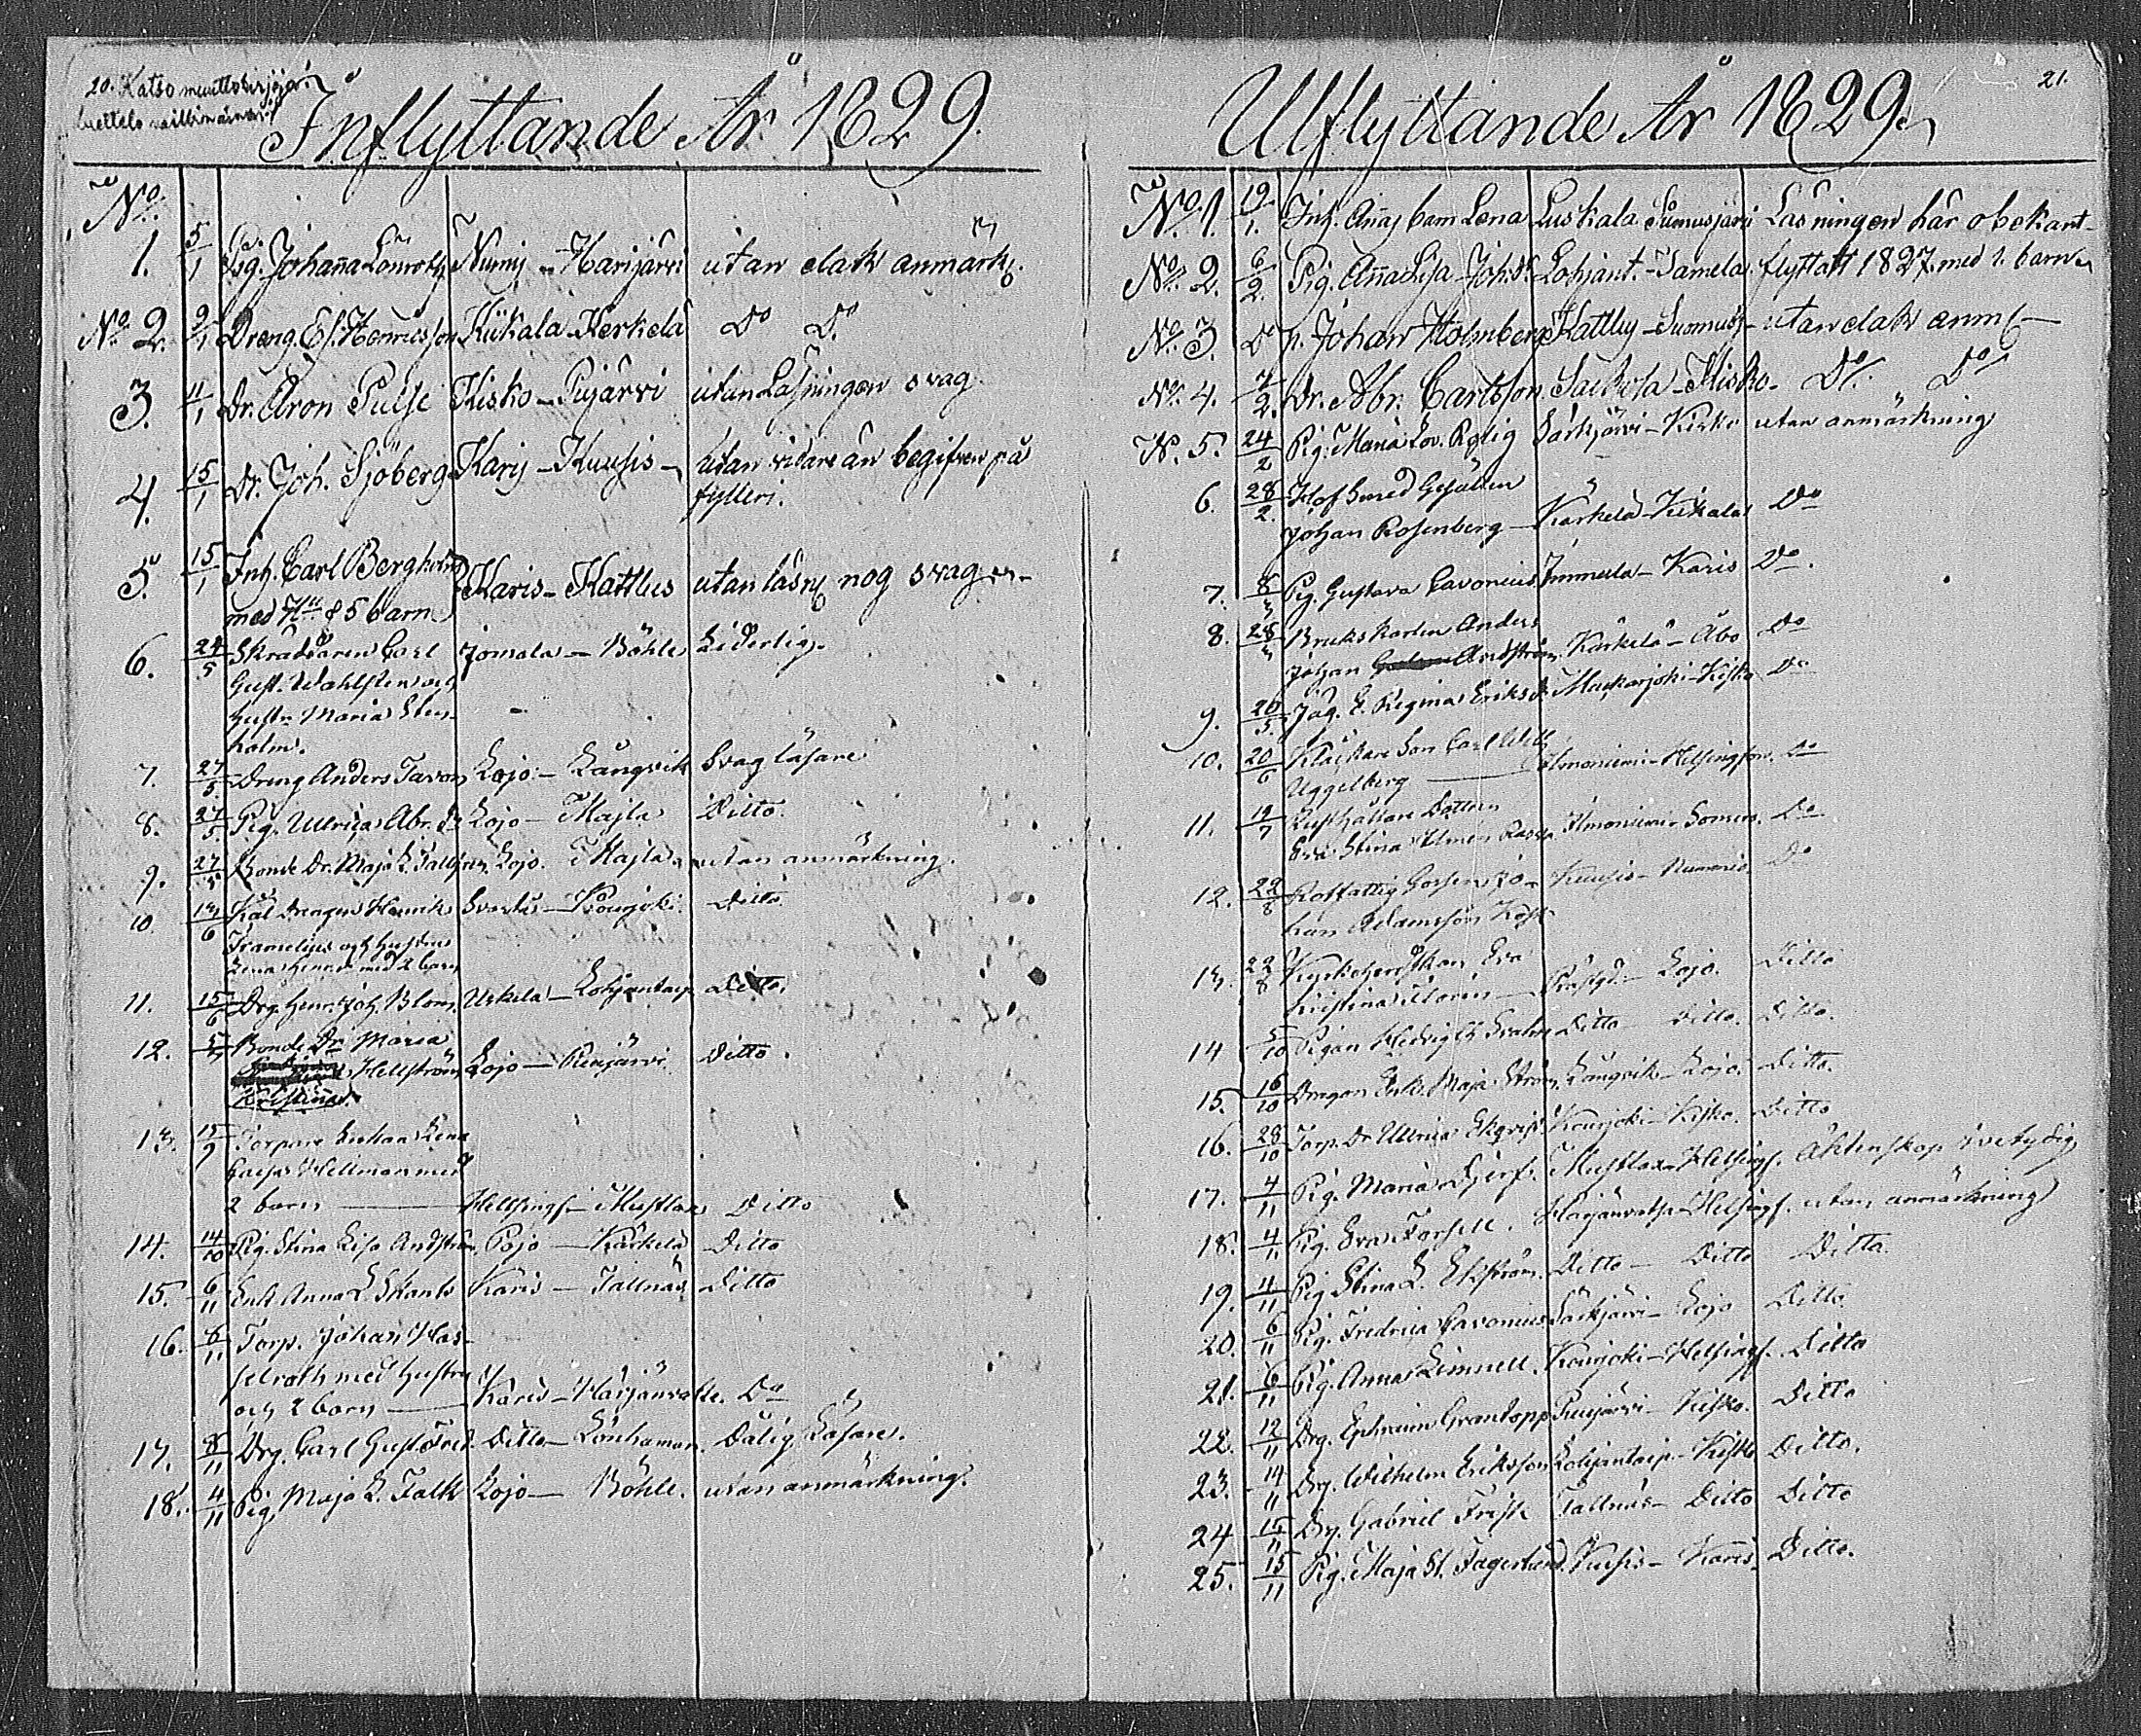 20. Katso muuttokirjoja!
luettelo vaillinainen!
Inflyttande År 1829.
No.
1. 5/1 Pig. Johanna Lönroth Numis - Harijärvi utan elak anmärk.
No 2. 9/1 Dreng Es. Henricsson Kiikala - Kerkelä Do Do
3. 11/1 Dr. Aron Kisko - Piijärvi utan Läsningen svag
4. 15/1 Dr. Joh. Sjöberg Karis - Kuusis - utan vidare än begifven på
fylleri.
5. 15/1 Inh. Carl Bergholm
med Hu & 5 barn Karis - Kattlus utan läsn. nog svag
6. 24/5 Skräddaren Carl Jomala - Böhle Liderlig.
Gust. Wahlsten och
hustr. Maria Sten-
holm.
7. 27/5 Dreng Anders Lojo - Långvik Svag läsare
8. 27/5 Pig. Ullrica Abr. dr Lojo - Majla Ditto.
9. 27/5 Bonde Dr. Maja L. Lojo. Majla utan anmärkning.
10. 13/6 Henrik Svartå - Kourjoki. Ditto
Framelius och hustru
Lena Henr.dr med 2 barn
11. 15/6 Drg. Henr. Joh. Blom. Uskela - Lohjantaip. Ditto.
12. Bonde Dr. Maria
Hellström Lojo - Piijärvi Ditto.
Kristina.
13. 15/9 Torpare Enkan Lena
Caisa Hellman med
2 barn Helsingf. - Mustlax Ditto
14. 14/10 Pig. Stina Lisa Andström. Pojo - Kärkelä Ditto
15. 6/11 Enk. Anna L. Skants Karis - Tallnäs Ditto
16. 6/11 Torp. Johan Has-
selroth med hustru
och 2 barn Karis - Harjänvatts. Do
17. 8/11 Drg. Carl Gust. Ditto - Lönhamar. Dålig Läsare.
18. 4/11 Pig. Maja L. Falk Lojo - Böhle. utan anmärkning.
Utflyttande År 1829.
21.
No. 1. 19/1. Inh. Annas barn Lena Luskala Suomusjärvi Läsningen här obekant.
No. 2. 6/2. Pig. Anna Lisa Joh.dr Lohjant. - Tamela flyttat 1827. med 1. barn
No. 3. Do p. Johan Holmberg Kattlus - Suomusj. - utan elak anm.
No. 4. 7/2. Dr. Abr. Carlsson - Kisko - Do. Do
No. 5. 24/2 Pig. Maria Lov. Rolig Särkjärvi - Kisko utan anmärkning
6. 28/2. Hofsmed Gesällen
Johan Rosenberg - Kärkelä - Kikala Do
7. 8/3 Pig. Gustava Cavonius Immola - Karis Do.
8. 28/3 Bruks Karlen Anders
Johan Andström. Kärkelä - Åbo Do
9. 20/5. Jäg. E. Regina Eriksdr Maikarjoki - Kisko Do
10. 20/6 Son Carl Wilh.
Uggelberg Ilmoniemi - Helsingfors. Do
11. 19/7 Rusthållare Dottern
Eva Stina Ilmén Ilmoniemi - Somero. Do
12. 22/8 Rotfattig Gossen Jo-
han Adamsson Kuusis - Nummis Do
13. 22/8 Kyrkoherdskan Eva
Kristina Prästgd. - Lojo. Ditto
14 5/10 Pigan Hedvig Ditto Ditto. Ditto.
15. 16/10 Dragon Enk. Maja Ström Långvik - Lojo. Ditto.
16. 28/10 Torp. Dr Ullrica Ekqvist Kourjoki - Kisko. Ditto
17. 4/11 Pig. Maria Djerf. Mustlax - Helsingf. Äktenskap tvetydig
18. 4/11 Pig. Eva Forsell. Harjänvatsa - Helsingf. utan anmärkning
19. 4/11 Pig. Stina L. Ekström. Ditto - Ditto Ditto.
20. 6/11 Pig. Fredrica Cavonius Särkjärvi - Lojo Ditto.
21. 6/11 Pig. Anna Limnell. Kourjoki - Helsingf. Ditto
22. 12/11 Drg. Ephraim Grantopp Piijärvi - Kisko. Ditto
23. 14/11 Drg. Wilhelm Eriksson Lohjantaip. - Kisko Ditto.
24 15/11 Drg. Gabriel Frisk Tallnäs - Ditto Ditto
25. 15/11 Pig. Maja St. Fagerlund. Kuusis - Karis. Ditto.